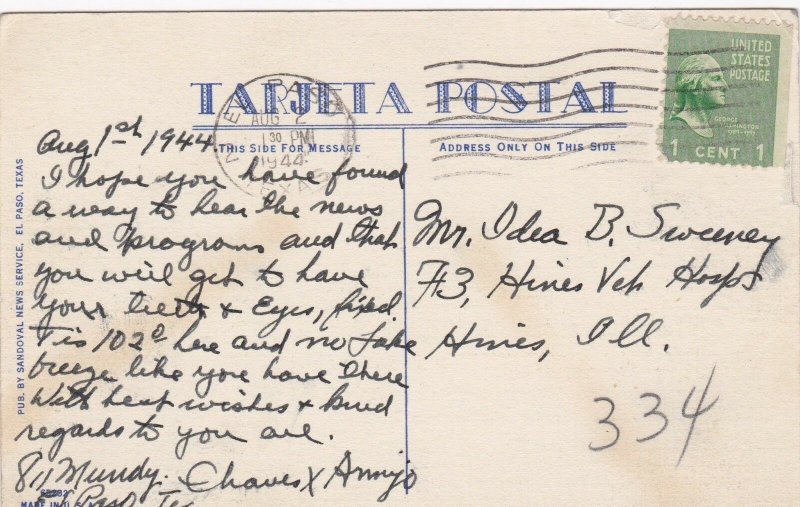 TARJETA POSTAL
THIS SIDE FOR MESSAGE
ADDRESS ONLY ON THIS SIDE
UNITED
STATES
POSTAGE
GEORGE
WASHINGTON
1 CENT 1
PASO
AUG 2
1 30 PM
1944
TEXAS
Aug 1st 1944
I hope you have found
a way to hear the news
and programs and that
you will get to have
your teeth & Eyes, fixed.
Tis 102° here and no Lake
breeze like you have there
With best wishes & kind
regards to you all.
811 Mundy. Chaves X Armijo
El Paso Tex
Mr. Idea B. Sweeney
F3, Hines Vet Hospt
Hines, Ill.
334
PUB. BY SANDOVAL NEWS SERVICE, EL PASO, TEXAS
MADE IN U.S.A.